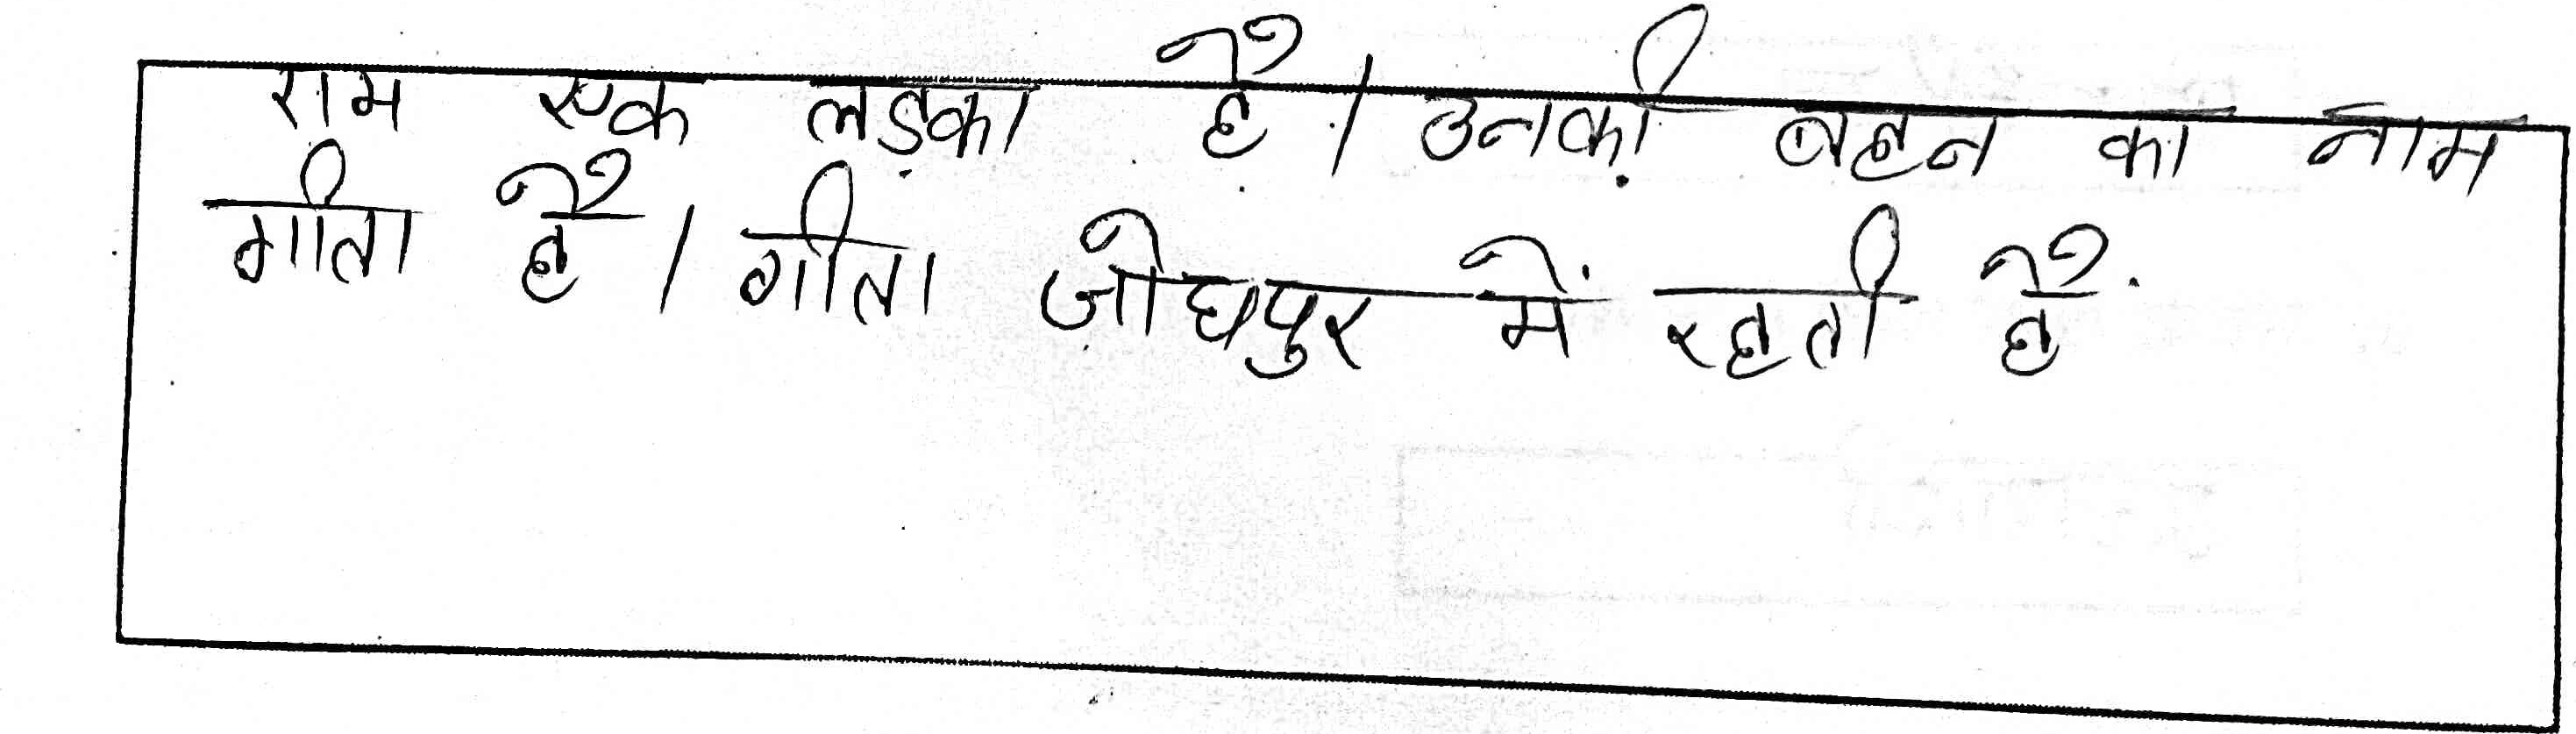 राम एक लड़का है। उनकी बहन का नाम
गीता है। गीता जोधपुर में रहती है.